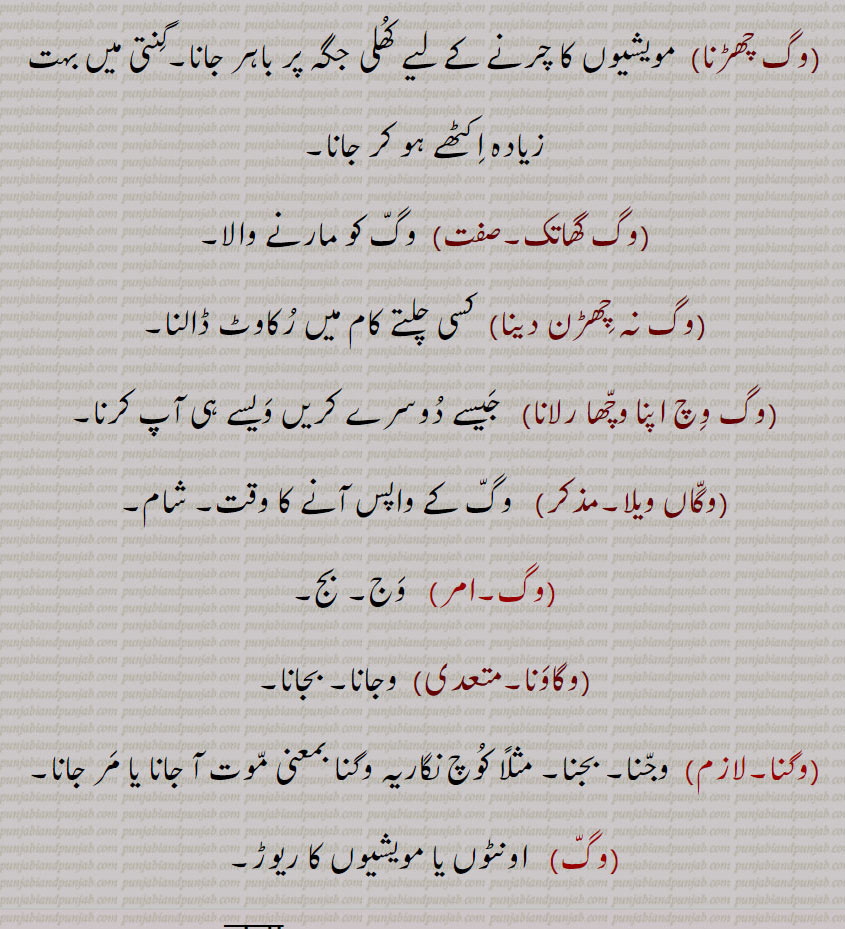 (وگ چھڑنا) مویشیوں کا چرنے کے لیے کُھلی جگہ پر باہر جانا۔ گِنتی میں بہت
زیادہ اِکٹھے ہو کر جانا۔
(وگ گھاتک۔صفت) وگّ کو مارنے والا۔
(وگ نہ چِھڑن دینا) کسی چلتے کام میں رُکاوٹ ڈالنا۔
(وگ وِچ اپنا وچّھا رلانا) جَیسے دُوسرے کریں وَیسے ہی آپ کرنا۔
(وگّاں ویلا۔مذکر) وگّ کے واپس آنے کا وقت۔ شام۔
(وگ۔امر) وَج۔ بج۔
(وگاوَنا۔متعدی) وجانا۔ بجانا۔
(وگنا۔لازم) وجّنا۔ بجنا۔ مثلًا کُوچ نگاریہ وگنا بمعنی مَوت آ جانا یا مَر جانا۔
(وگّ) اونٹوں یا مویشیوں کا ریوڑ۔